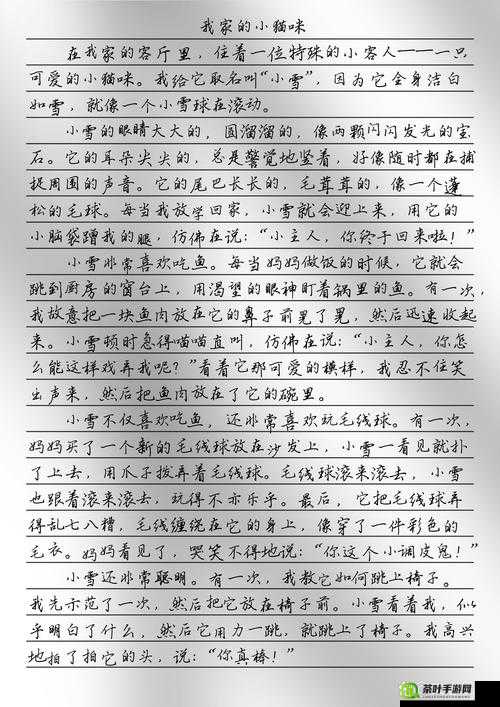 我家的小猫咪
在我家的客厅里，住着一位特殊的小客人——一只
可爱的小猫咪。我给它取名叫“小雪”，因为它全身洁白
如雪，就像一个小雪球在滚动。
小雪的眼睛大大的，圆溜溜的，像两颗闪闪发光的宝
石。它的耳朵尖尖的，总是警觉地竖着，好像随时都在捕
捉周围的声音。它的尾巴长长的，毛茸茸的，像一个蓬
松的毛球。每当我放学回家，小雪就会迎上来，用它的
小脑袋蹭我的腿，仿佛在说：“小主人，你终于回来啦！”
小雪非常喜欢吃鱼。每当妈妈做饭的时候，它就会
跳到厨房的窗台上，用渴望的眼神盯着锅里的鱼。有一次，
我故意把一块鱼肉放在它的鼻子前晃了晃，然后迅速收起
来。小雪顿时急得喵喵直叫，仿佛在说：“小主人，你怎
么能这样戏弄我呢？”看着它那可爱的模样，我忍不住笑
出声来，然后把鱼肉放在了它的碗里。
小雪不仅喜欢吃鱼，还非常喜欢玩毛线球。有一次，
妈妈买了一个新的毛线球放在沙发上，小雪一看见就扑
了上去，用爪子拨弄着毛线球。毛线球滚来滚去，小雪
也跟着滚来滚去，玩得不亦乐乎。最后，它把毛线球弄
得乱七八糟，毛线缠绕在它的身上，像穿了一件彩色的
毛衣。妈妈看见了，哭笑不得地说：“你这个小调皮鬼！”
小雪还非常聪明。有一次，我教它如何跳上椅子。
我先示范了一次，然后把它放在椅子前。小雪看着我，似
乎明白了什么，然后它用力一跳，就跳上了椅子。我高兴
地拍了拍它的头，说：“你真棒！”
茶叶手游网